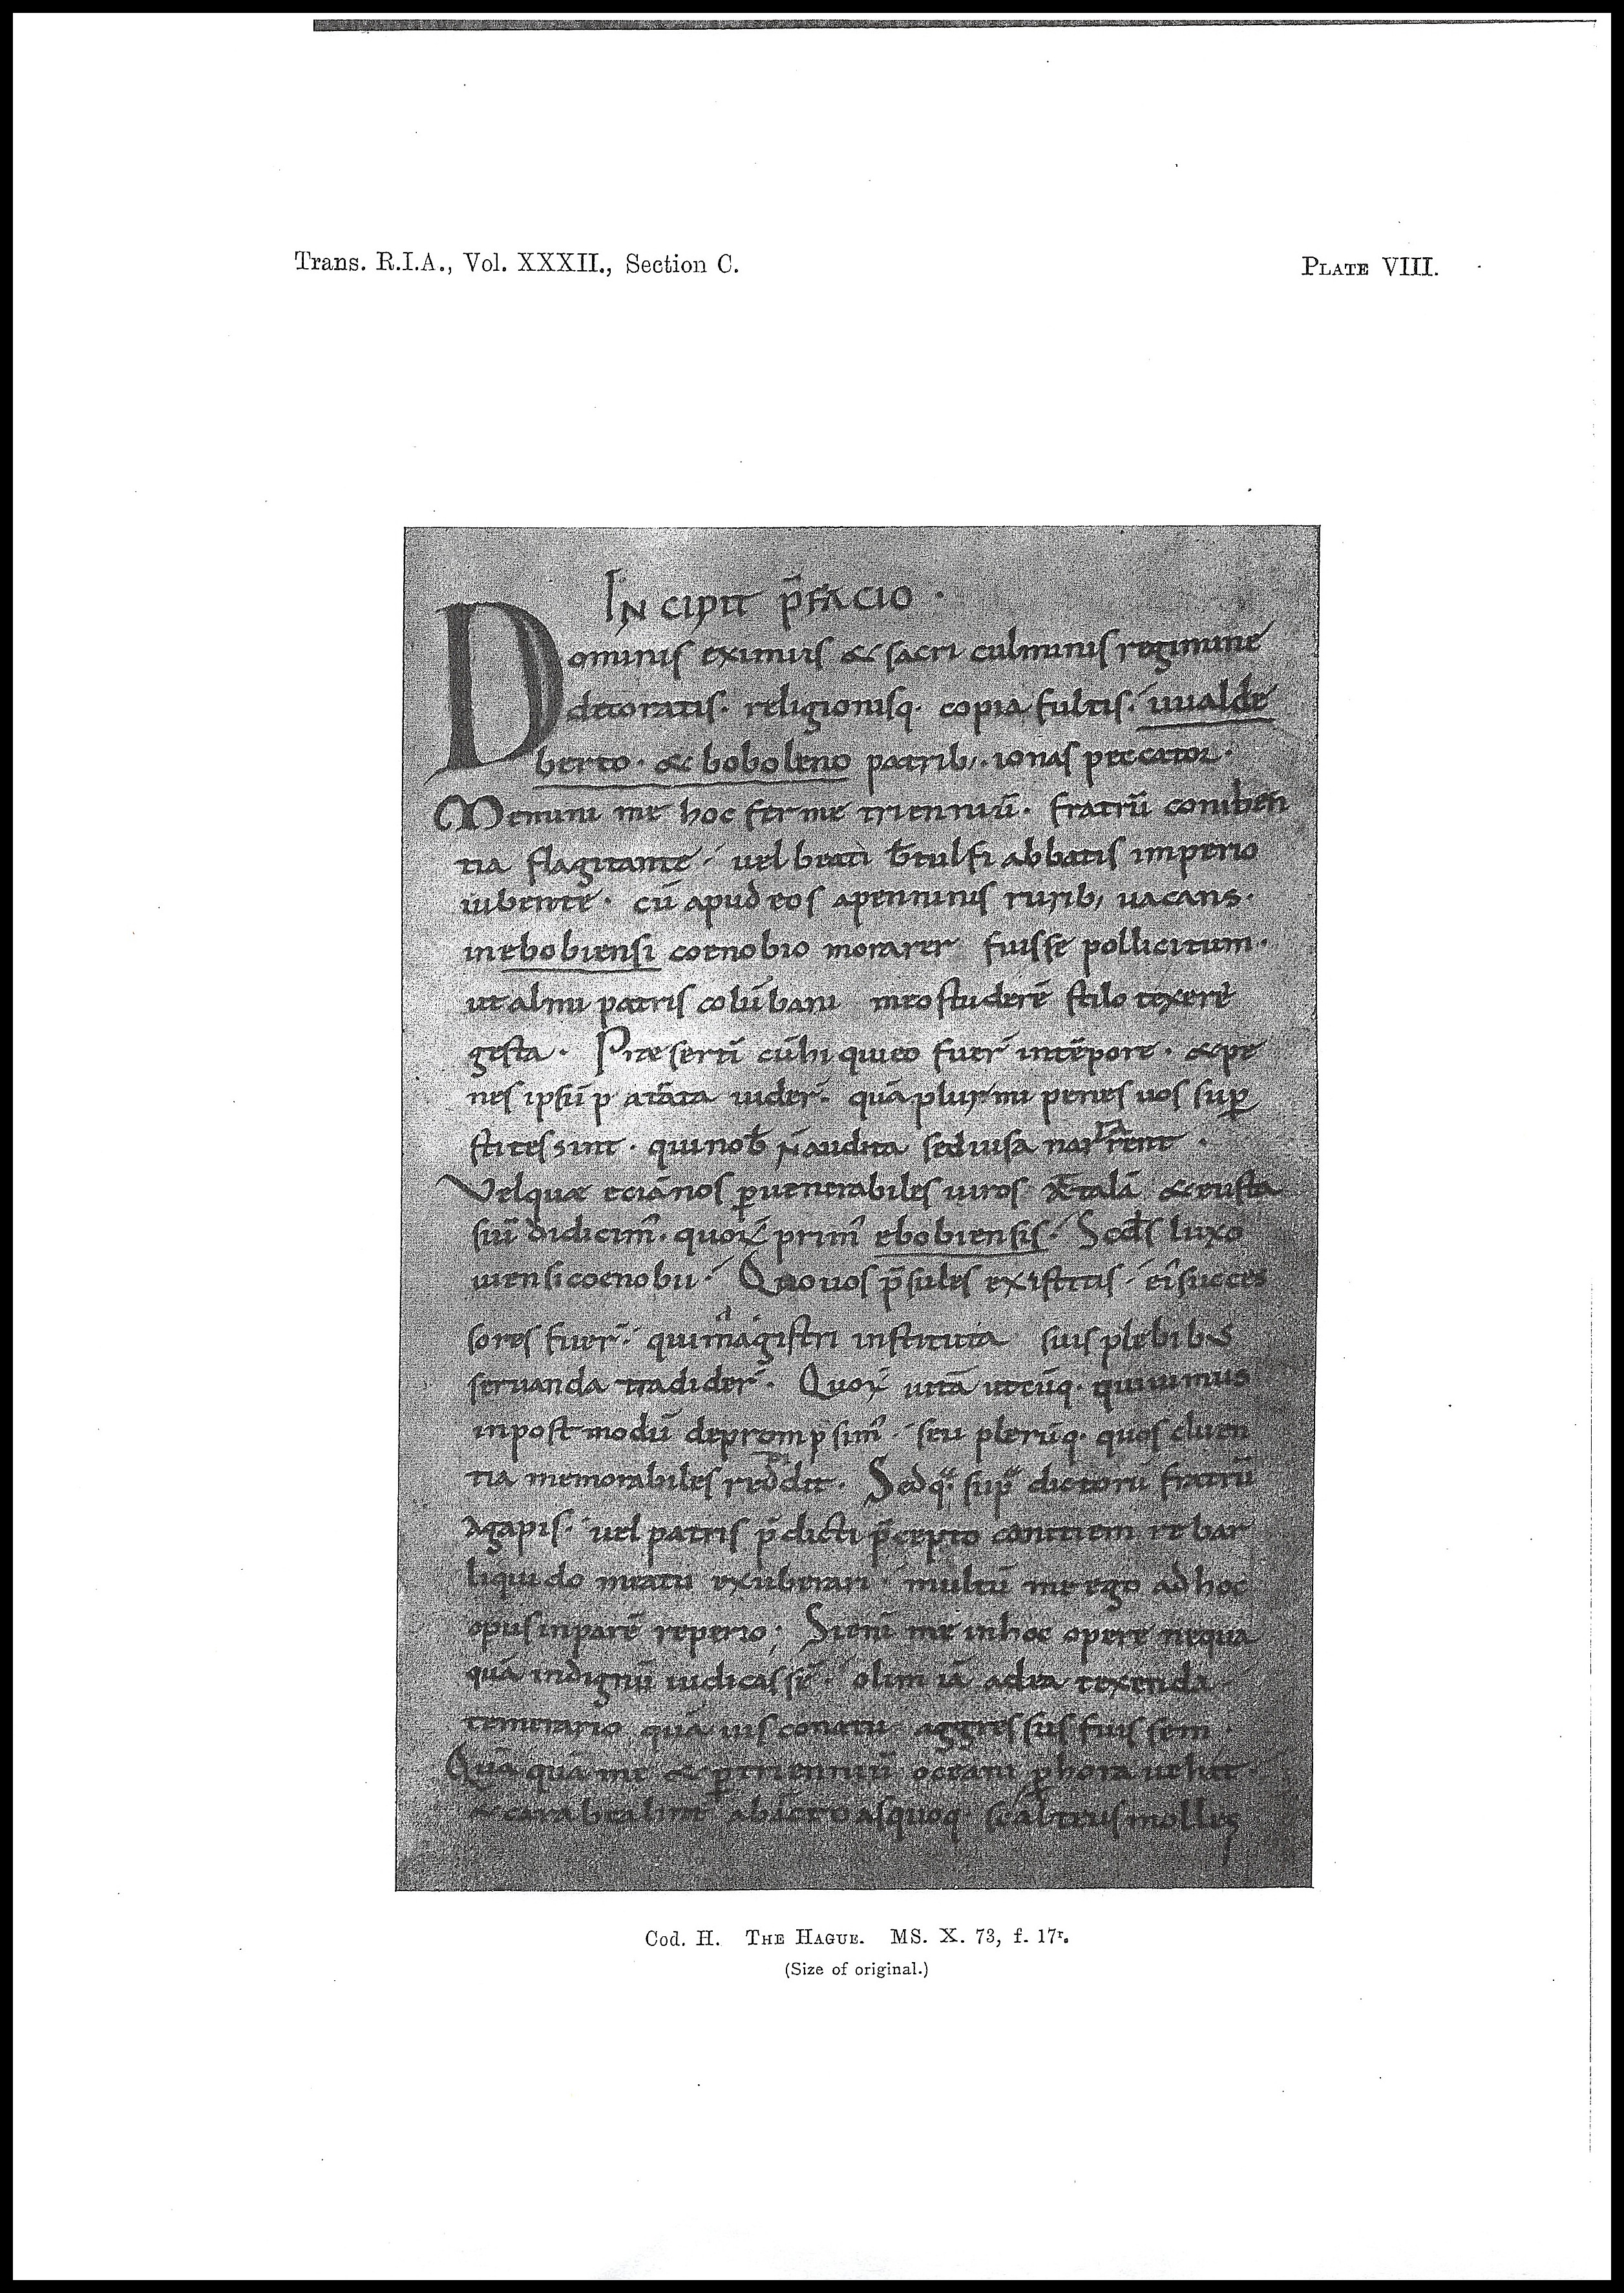 Trans. R.I.A., Vol. XXXII., Section C.
PLATE VIII.
INcipit p̄facio ·
Dominis eximiis & sacri culminis regimine
decoratis · religionisq· copia fultis · uualde
berto · & boboleno patrib; · ionas peccator ·
Memini me hoc ferme trienniū · fratrū coniben
tia flagitante · uel beati b̄tulfi abbatis imperio
iubente · cū apud eos apenninis rurib; uacans ·
in ebobiensi coenobio morarer fuisse pollicitum ·
ut almi patris colūbani meo studerē stilo texere
gesta · Praesertī cū hi qui eo fuer̄ in tēpore · & pe
nes ipsū patrata uider̄ · quā plurimi penes uos sup
stites sint · qui nob̄ n̄ audita sed uisa narrarent ·
Vel quae eciā nos p uenerabiles uiros & eusta
siū didicim̄ · quoꝝ prim̄ ebobiensis · Scd̄s luxo
uensi coenobii · Quo uos p̄sules existitis · ei succes
sores fuer̄ · qui magistri instituta suis plebibus
seruanda tradider̄ · Quoꝝ uitā utcūq· qui uimus
in postmodū deprompsim̄ · seu plerūq· quos cluen
tia memorabiles reddit · Sed q· sup dictorū fratrū
agapis · uel patris p̄dicti p̄cepto contiem rebar
liquido meatu exuberari · multū me ego ad hoc
opus inparē reperio; Si enī me in hoc opere nequa
quā indignū iudicassē · olim iā ad ea texenda
temerario quāuis conatu aggressus fuissem ·
Quā quā me & p trienniū oceani p hora uehit ·
& abiecto asquoq· molles
Cod. H. THE HAGUE. MS. X. 73, f. 17r.
(Size of original.)